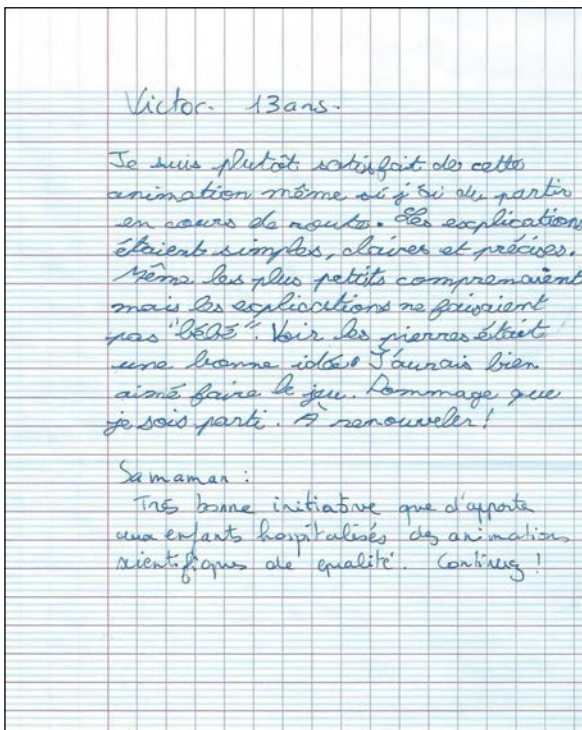 Victor. 13 ans.
Je suis plutôt satisfait de cette
animation même si j'ai du partir
en cours de route. Les explications
étaient simples, claires et précises.
Même les plus petits comprenaient
mais les explications ne faisaient
pas "bébé". Voir les pierres était
une bonne idée. J'aurais bien
aimé faire le jeu. Dommage que
je sois parti. À renouveler !
Sa maman :
Très bonne initiative que d'apporter
aux enfants hospitalisés des animations
scientifiques de qualité. Continuez !